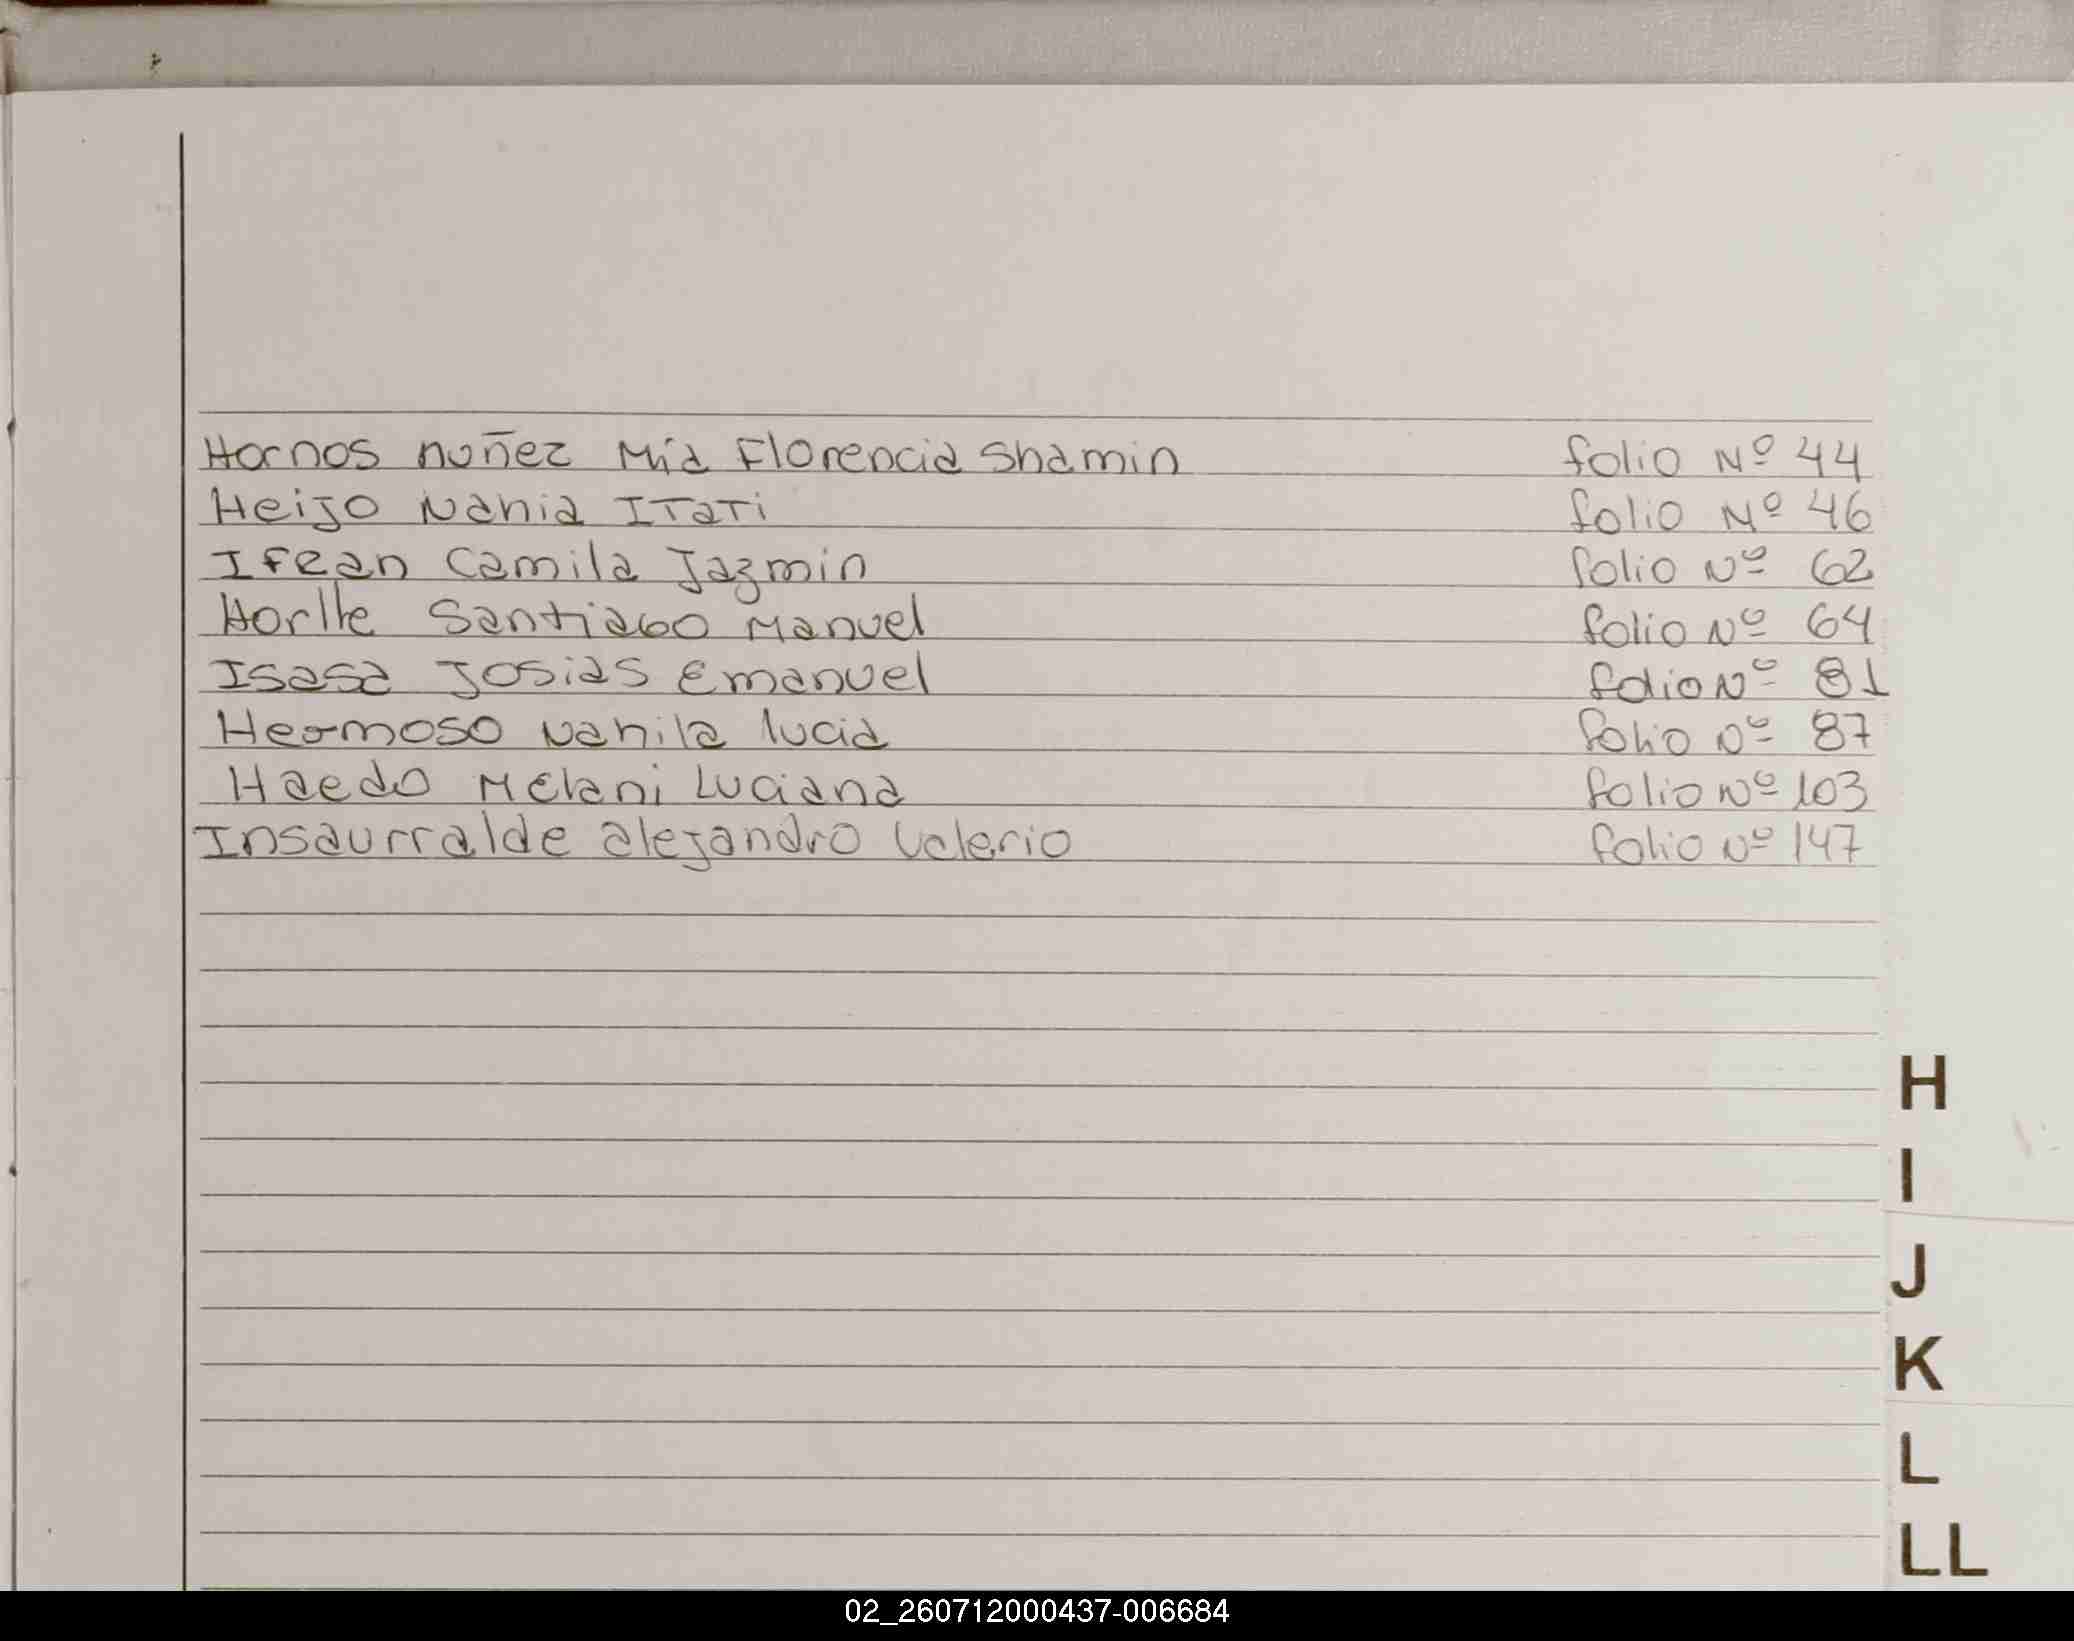 Hornos nuñez Mía Florencia Shamin folio Nº 44
Heijo Nahia ITaTi folio Nº 46
Ifran Camila Jazmin folio Nº 62
Horlle Santiago Manuel folio Nº 64
Isasa Josias Emanuel folio Nº 81
Hermoso Nahila lucia folio Nº 87
Haedo Melani Luciana folio Nº 103
Insaurralde alejandro Valerio folio Nº 147
H
I
J
K
L
LL
02_260712000437-006684